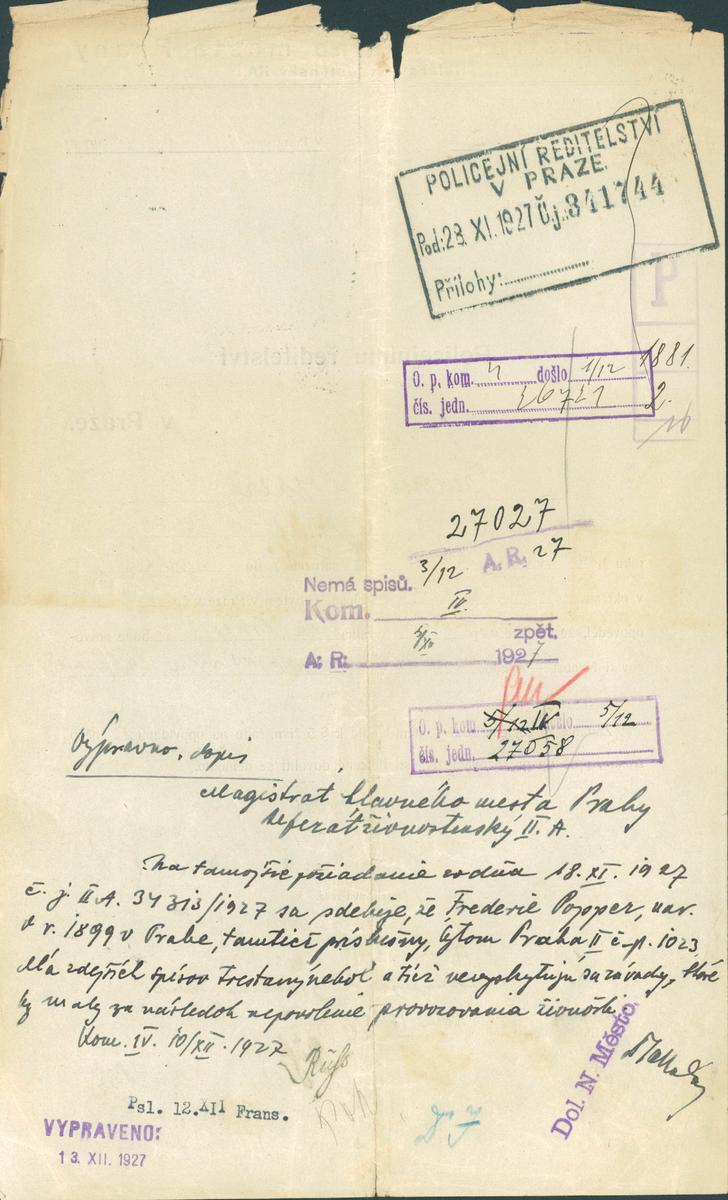 POLICEJNÍ ŘEDITELSTVÍ
V PRAZE.
Pod: 28. XI. 1927 Č.j. 341744
Přílohy:
P
O. p. kom. 4 došlo 1/12 1881.
čís. jedn. 26721 2.
27027
3/12 A. R. 27
Nemá spisů.
Kom. IV.
zpět.
A. R. 1927
O. p. kom. 5/12 IV došlo 5/12
čís. jedn. 27058
Výpravno, dopis
Magistrát hlavného mesta Prahy
referát živnostenský II. A.
Na tamojšie požiadanie zo dňa 18. XI. 1927
č. j. II A. 34313/1927 sa sdeľuje, že Frederic Popper, nar.
v r. 1899 v Prahe, tamtiež príslušný, bytom Praha II č. p. 1023
dľa zdejších spisov trestaný nebol a tiež nevyskytujú sa závady, ktoré
by maly za následok nepovolenie provozovania živnosti.
Kom. IV. 10/XII. 1927
Dol. N. Město.
Psl. 12.XII Frans.
VYPRAVENO:
13. XII. 1927